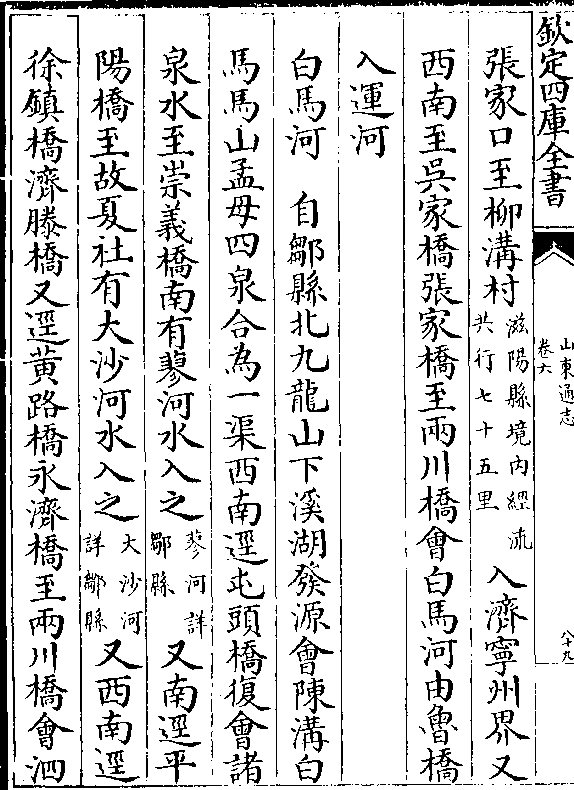 欽定四庫全書
山東通志
卷六
八十九
張家口至柳溝村滋陽縣境內經流共行七十五里入濟寧州界又
西南至吳家橋張家橋至兩川橋會白馬河由魯橋
入運河
白馬河 自鄒縣北九龍山下溪湖發源會陳溝白
馬馬山孟母四泉合為一渠西南逕屯頭橋復會諸
泉水至崇義橋南有蓼河水入之蓼河詳鄒縣又南逕平
陽橋至故夏社有大沙河水入之大沙河詳鄒縣又西南逕
徐鎮橋濟滕橋又逕黄路橋永濟橋至兩川橋會泗